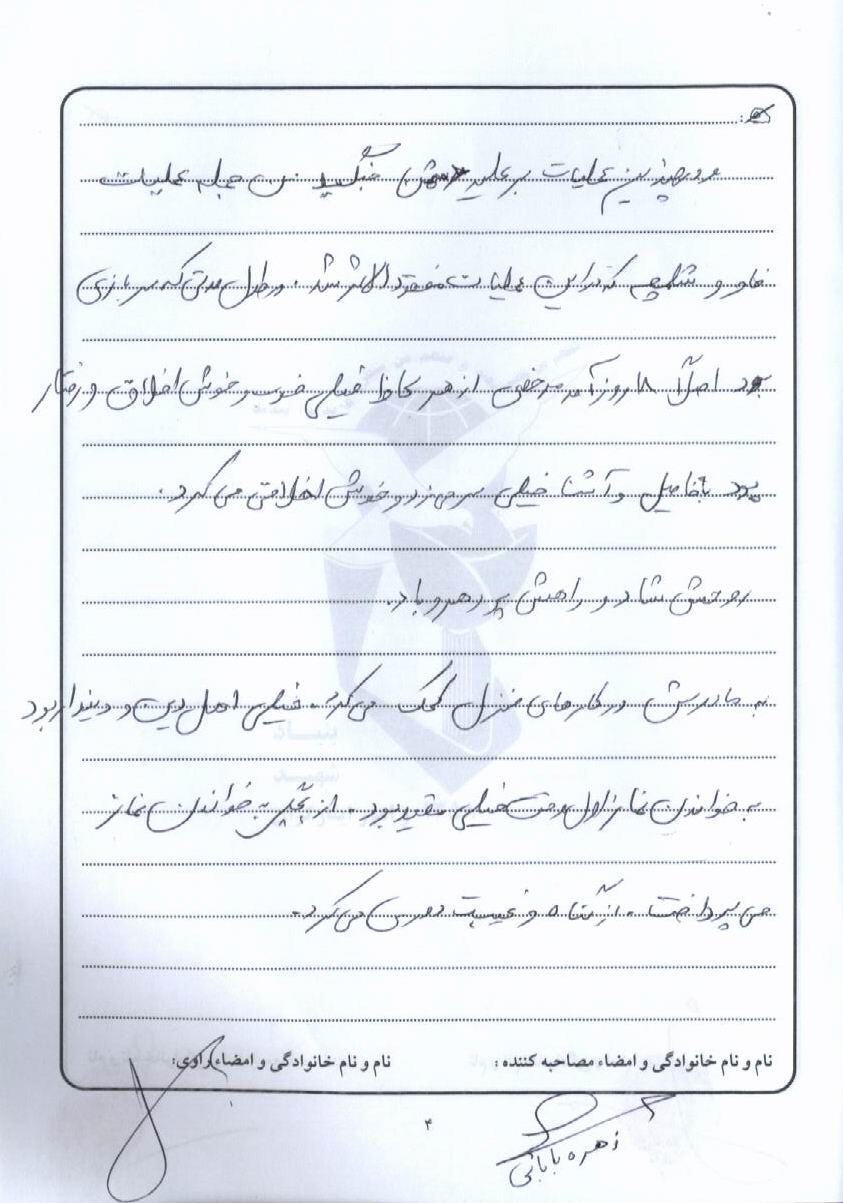 در چندین عملیات بر علیه دشمن جنگید من جمله عملیات
خاور و شلمچه که در این عملیات مفقود الاثر شد. در طول مدتی که سربازی
بود اصلاً ۱۸ روز آمد مرخصی از هر لحاظ خیلی خوب و خوش اخلاق و رفتار
بود با فامیل و آشنا خیلی سر می زد و خوش اخلاقی می کرد.
روحش شاد و راهش پر رهرو باد.
به مادرش در کارهای منزل کمک می کرد. خیلی اهل دین و دیندار بود
به خواندن نماز اول وقت خیلی مقید بود. از بچگی به خواندن نماز
می پرداخت. از گناه و غیبت دوری می کرد.
نام و نام خانوادگی و امضاء مصاحبه کننده :
نام و نام خانوادگی و امضاء راوی:
زهره بابائی
۴
بنیاد
شهید